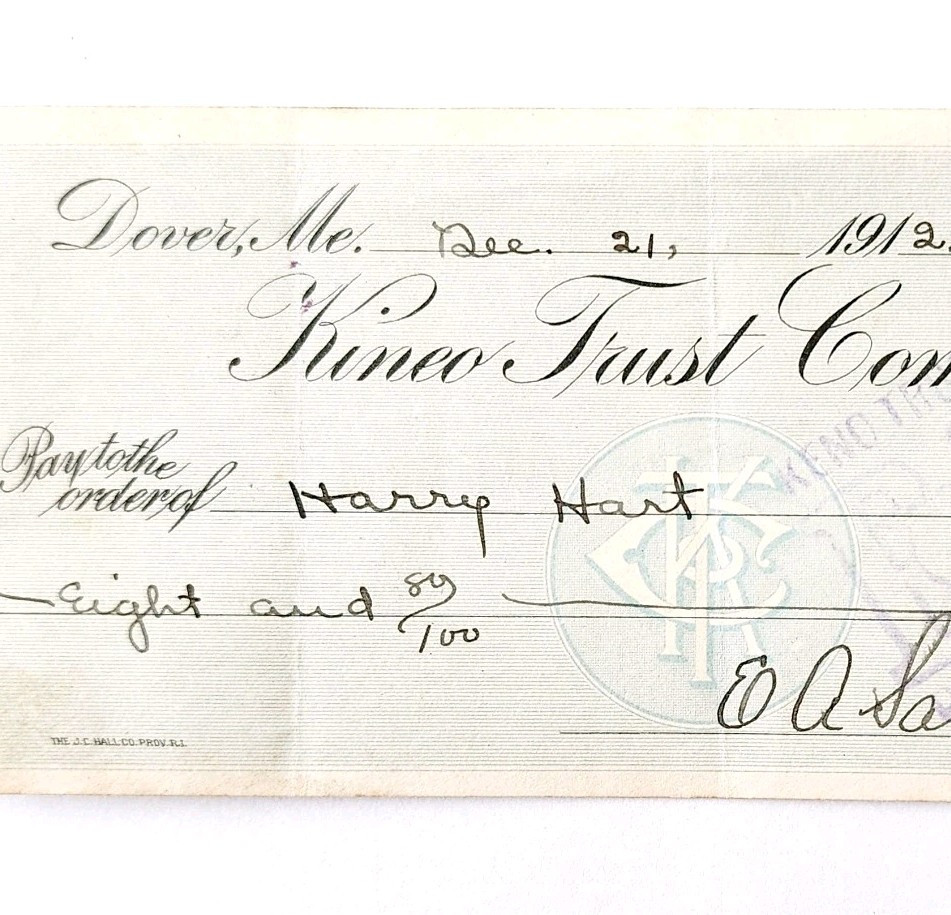 Dover, Me. Dec. 21, 1912.
Kineo Trust Com
Pay to the
order of Harry Hart
Eight and 89/100
E A Sa
KENO TR
THE J.C. HALL CO. PROV. R.I.